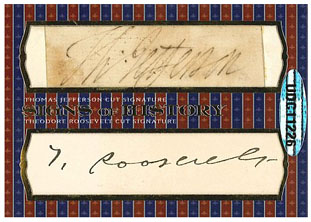 Th: Jefferson
THOMAS JEFFERSON CUT SIGNATURE
SIGNS of HISTORY
THEODORE ROOSEVELT CUT SIGNATURE
T. Roosevelt